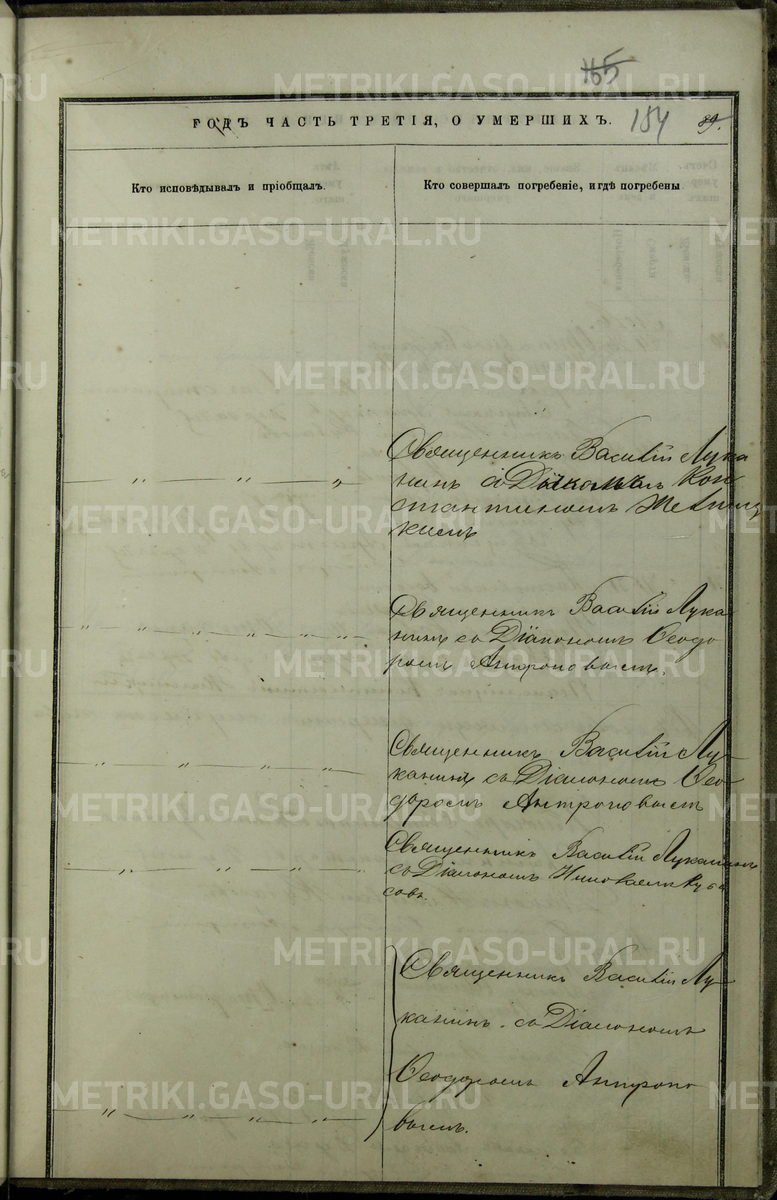 165
ГОДЪ ЧАСТЬ ТРЕТІЯ, О УМЕРШИХЪ. 154 89.
Кто исповѣдывалъ и пріобщалъ.
Кто совершалъ погребеніе, и гдѣ погребены
Священникъ Василій Лука
нинъ съ Діакономъ Кон
стантиномъ
кимъ
Священникъ Василій Лука
нинъ съ Діакономъ Ѳеодо
ромъ Антроповымъ.
Священникъ Василій Лу-
канинъ съ Діакономъ Ѳео-
доромъ Антроповымъ
Священникъ Василій Луканинъ
съ Діакономъ
Священникъ Василій Лу-
канинъ съ Діакономъ
Ѳеодоромъ Антропо
вымъ.
METRIKI.GASO-URAL.RU